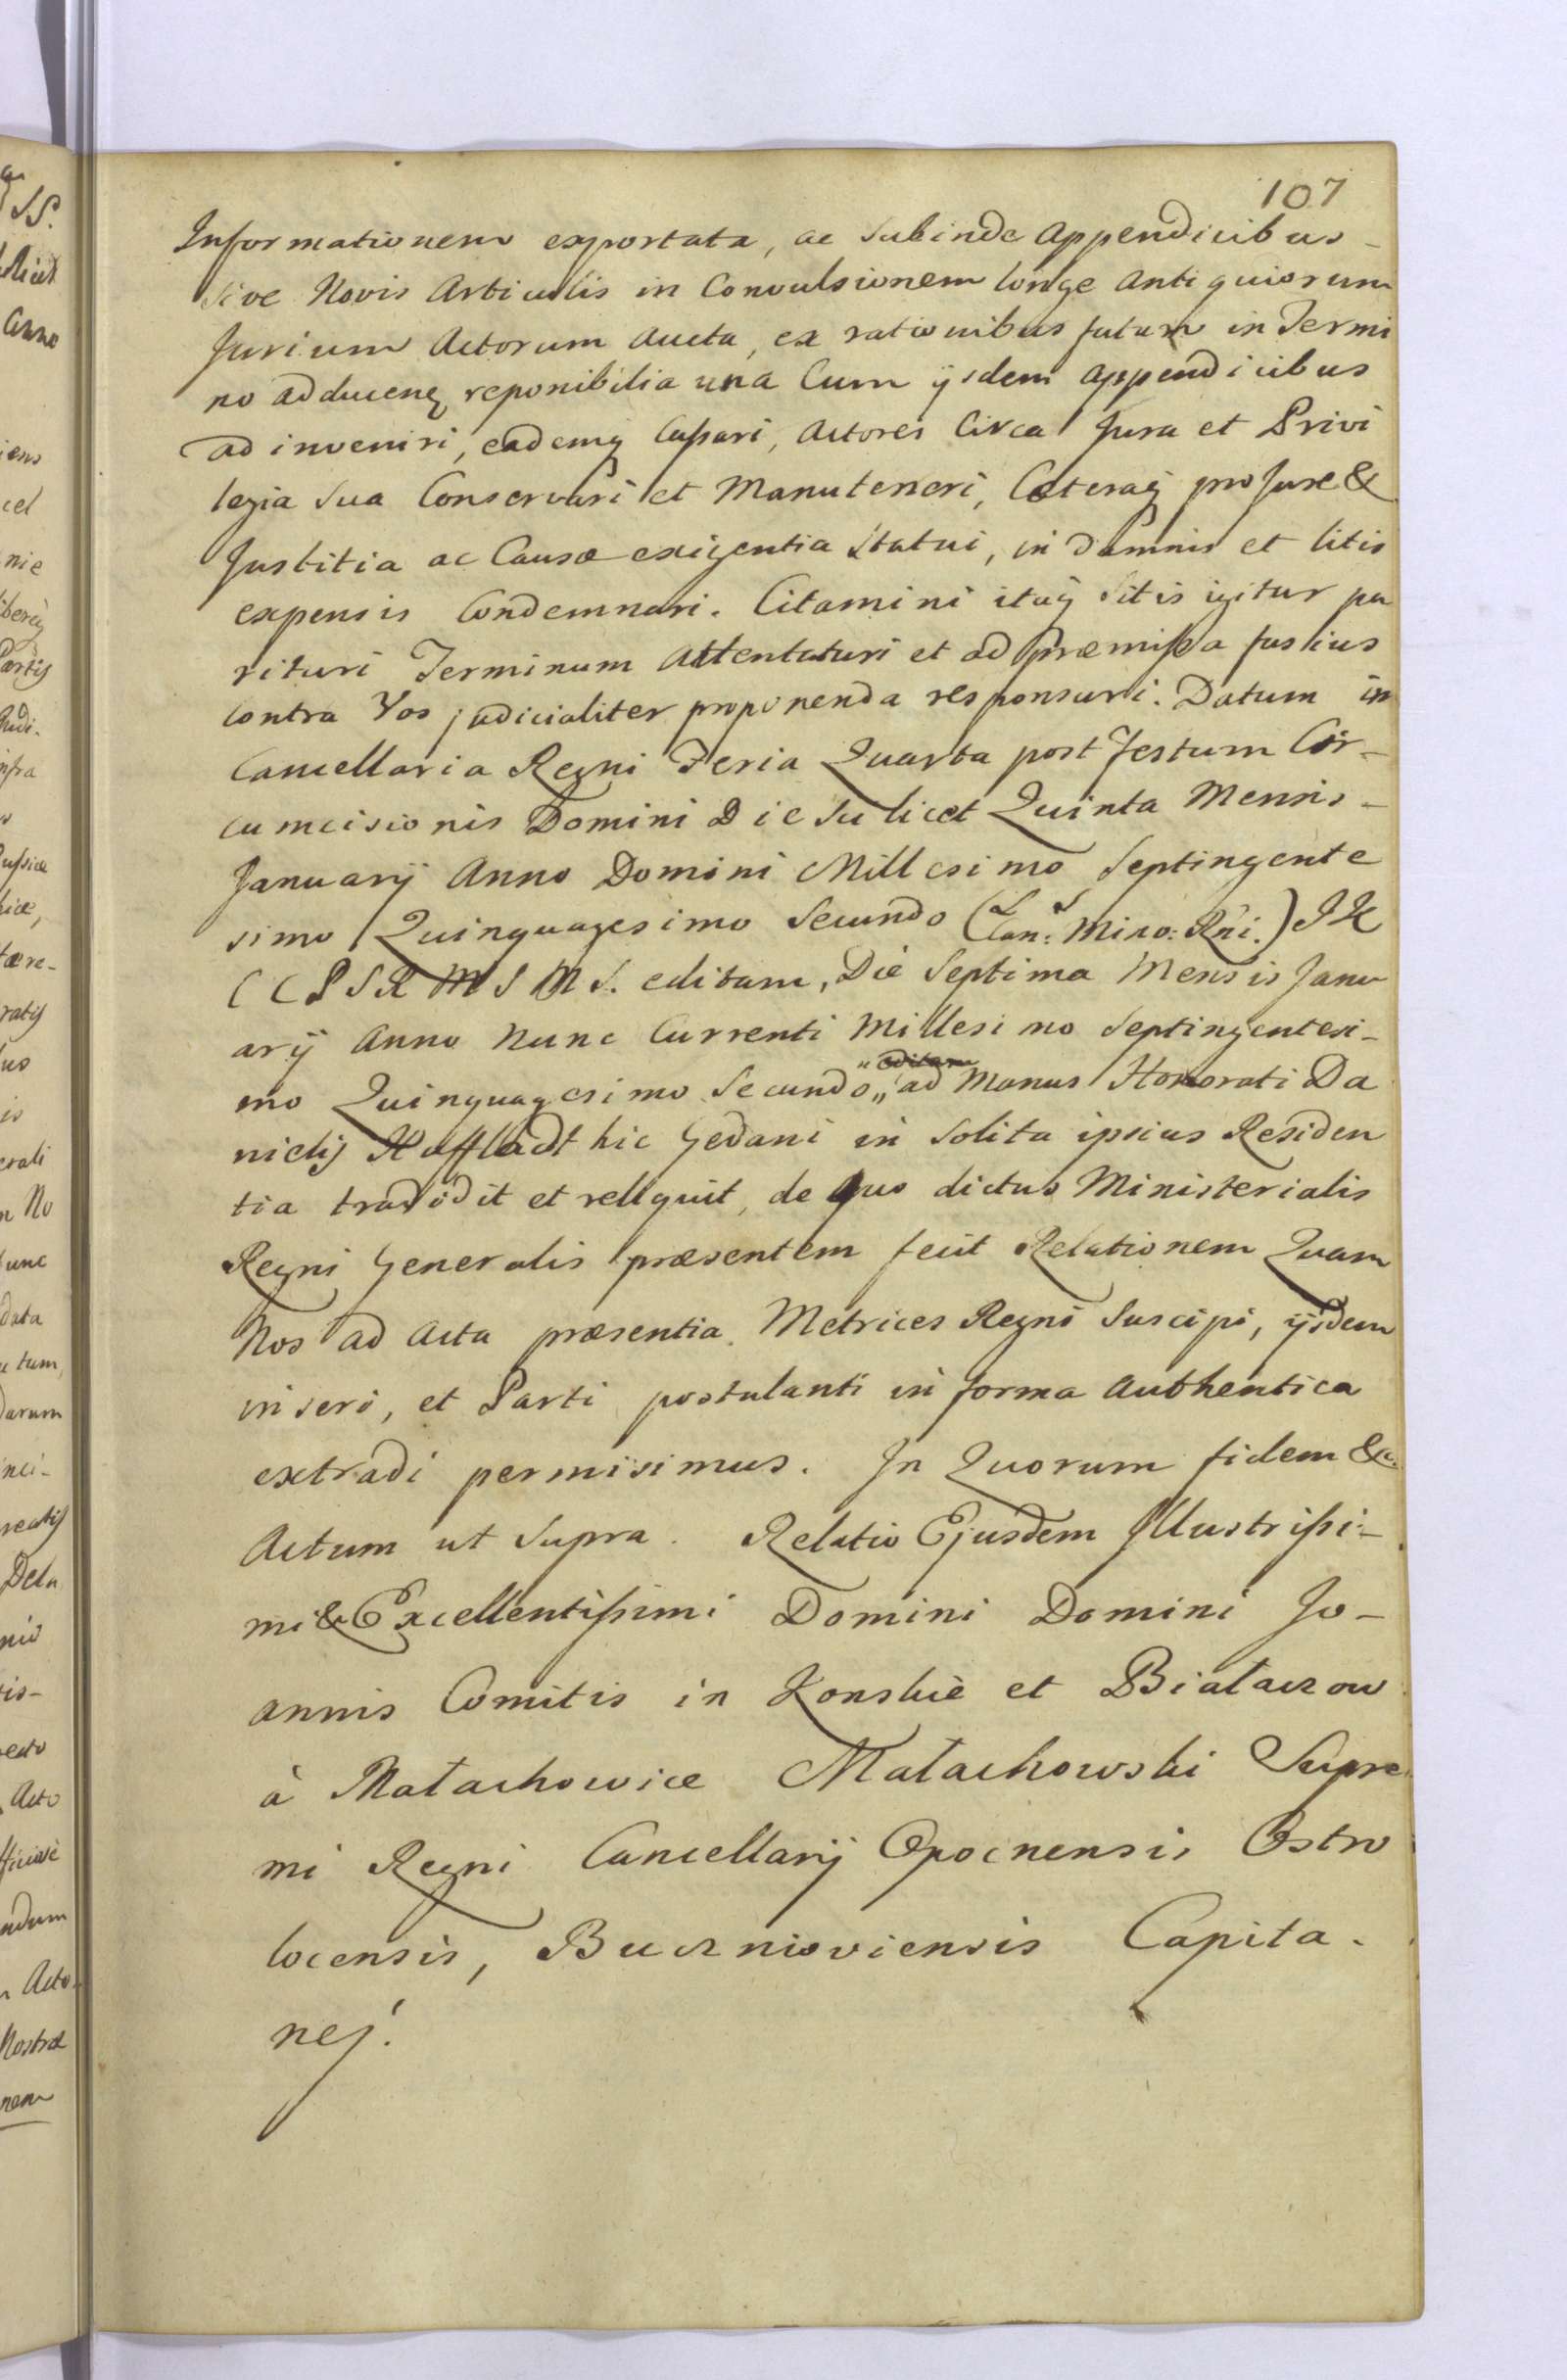 107
Informationem exportata, ac subinde Appendicibus -
sive Novis Articulis in Convulsionem longe Antiquiorum
Jurium Actorum Aucta, ex rationibus futuro in Termi
no adducenq reponibilia una Cum ijsdem Appendicibus
ad inveniri, eademq Cassari, Actores Circa Jura et Privi
legia sua Conservari et Manuteneri, Cæteraq pro Jure &
Justitia ac Causæ exigentia Statui, in damnis et litis
expensis Condemnari. Citamini itaq sitis igitur pa
rituri Terminum Attentaturi et ad præmissa fusius
contra Vos judicialiter proponenda responsuri. Datum in
Cancellaria Regni Feria Quarta post Festum Cir-
cumcisionis Domini Die scilicet Quinta Mensis -
Januarij Anno Domini Millesimo Septingente
simo Quinquagesimo Secundo (L S Can: Mino: Rni.) J K
C C P S R M S M S. editam, Die Septima Mensis Janu
arij Anno Nunc Currenti Millesimo Septingentesi-
mo Quinquagesimo Secundo „ ad Manus Honorati Da
nielis Haffladt hic Gedani in Solita ipsius Residen
tia tradidit et reliquit, de quo dictus Ministerialis
Regni Generalis præsentem fecit Relationem Quam
Nos ad Acta præsentia Metrices Regni Suscipi, ijsdem
inseri, et Parti postulanti in forma Authentica
extradi permisimus. In Quorum fidem &c.
Actum ut Supra. Relatio Ejusdem Illustrissi-
mi & Excellentissimi Domini Domini Jo-
annis Comitis in Konskie et Białaczow
à Małachowice Małachowski Supre
mi Regni Cancellarij Opocnensis Ostro
locensis, Bucznioviensis Capita.
nej.